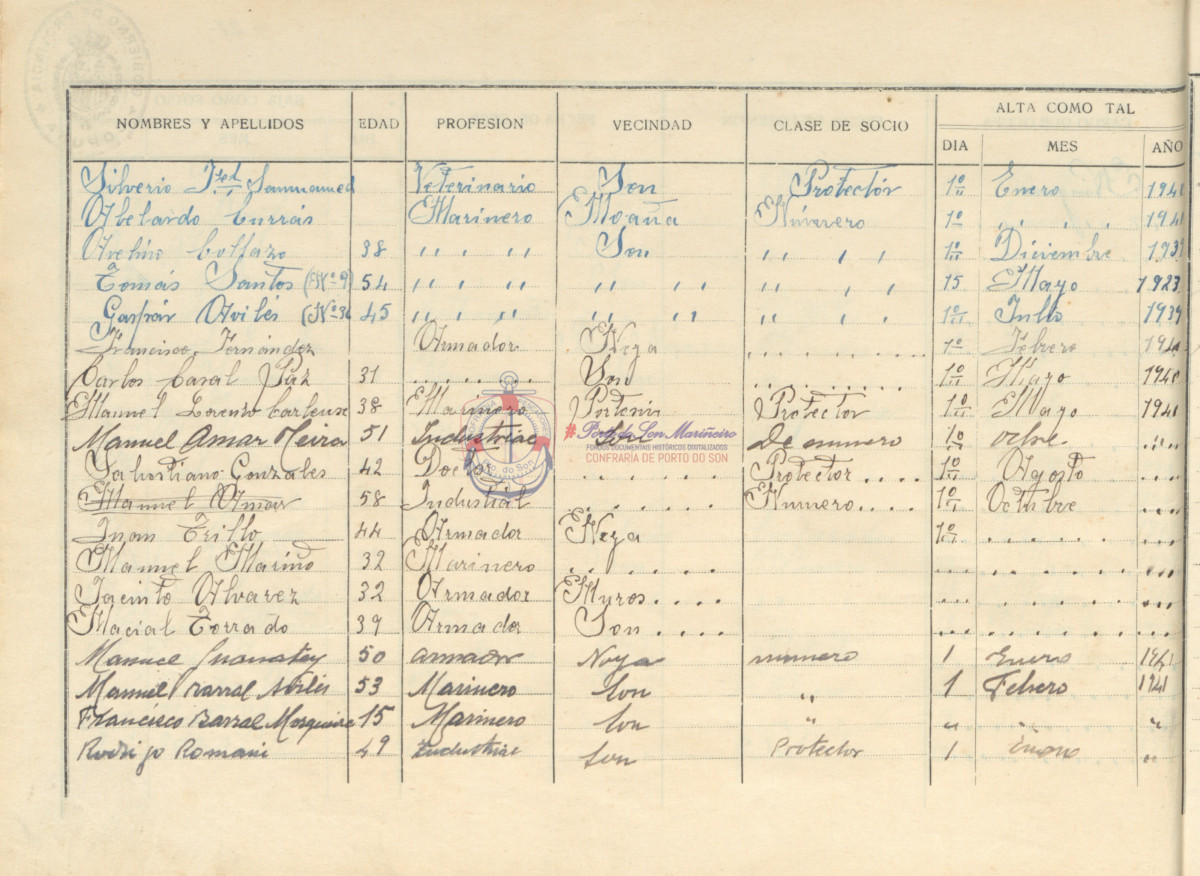 NOMBRES Y APELLIDOS EDAD PROFESION VECINDAD CLASE DE SOCIO ALTA COMO TAL
DIA MES AÑO
Silverio Veterinario Son Protectór 1º Enero
Abelardo Currás Marinero Moaña Número 1º , , , ,
Avelino Collazo 38 ,, ,, ,, Son ,, , , 1º Diciembre
Tomás Santos (Nº 9) 54 ,, ,, ,, ,, ,, ,, , , 15 Mayo 1923
Gaspár Avilés (Nº 36 45 ,, ,, ,, ,, ,, ,, , , 1º Julio 1939
Francisco Fernández Armador Noya . . . . . . . . 1º Febrero
Carlos Casal Paz 31 . . . . . . . Son . . . . . . . . 1º Mayo 1940
Manuel Lorenzo 38 Marinero Protector 1º Mayo
Manuel Amar Neira 51 Industrial Son De numero 1º octbre. ...
Salustiano Gonzales 42 Doctor . . . . . . Protector .... 1º Agosto ...
Manuel Amar 58 Industrial . . . . . . Numero.... 1º Octubre ...
Juan Trillo 44 Armador Noya 1º . . . . . . ...
Manuel Mariño 32 Marinero . . . . . . ... . . . . . . ...
Jacinto Alvarez 32 Armador Muros.... ... . . . . . . ...
Macial Torrado 39 Armador Son .... ... . . . . . . ...
Manuel 50 armador Noya numero 1 Enero 1941
Manuel Barral Avilés 53 Marinero Son ,, 1 Febrero 1941
Francisco Barral 15 Marinero Son ,, ,, ,, ,,
Rodrigo Romani 49 Son Protector 1 Enero ,,
# Porto do Son Mariñeiro
FONDOS DOCUMENTAIS HISTÓRICOS DIGITALIZADOS
CONFRARÍA DE PORTO DO SON